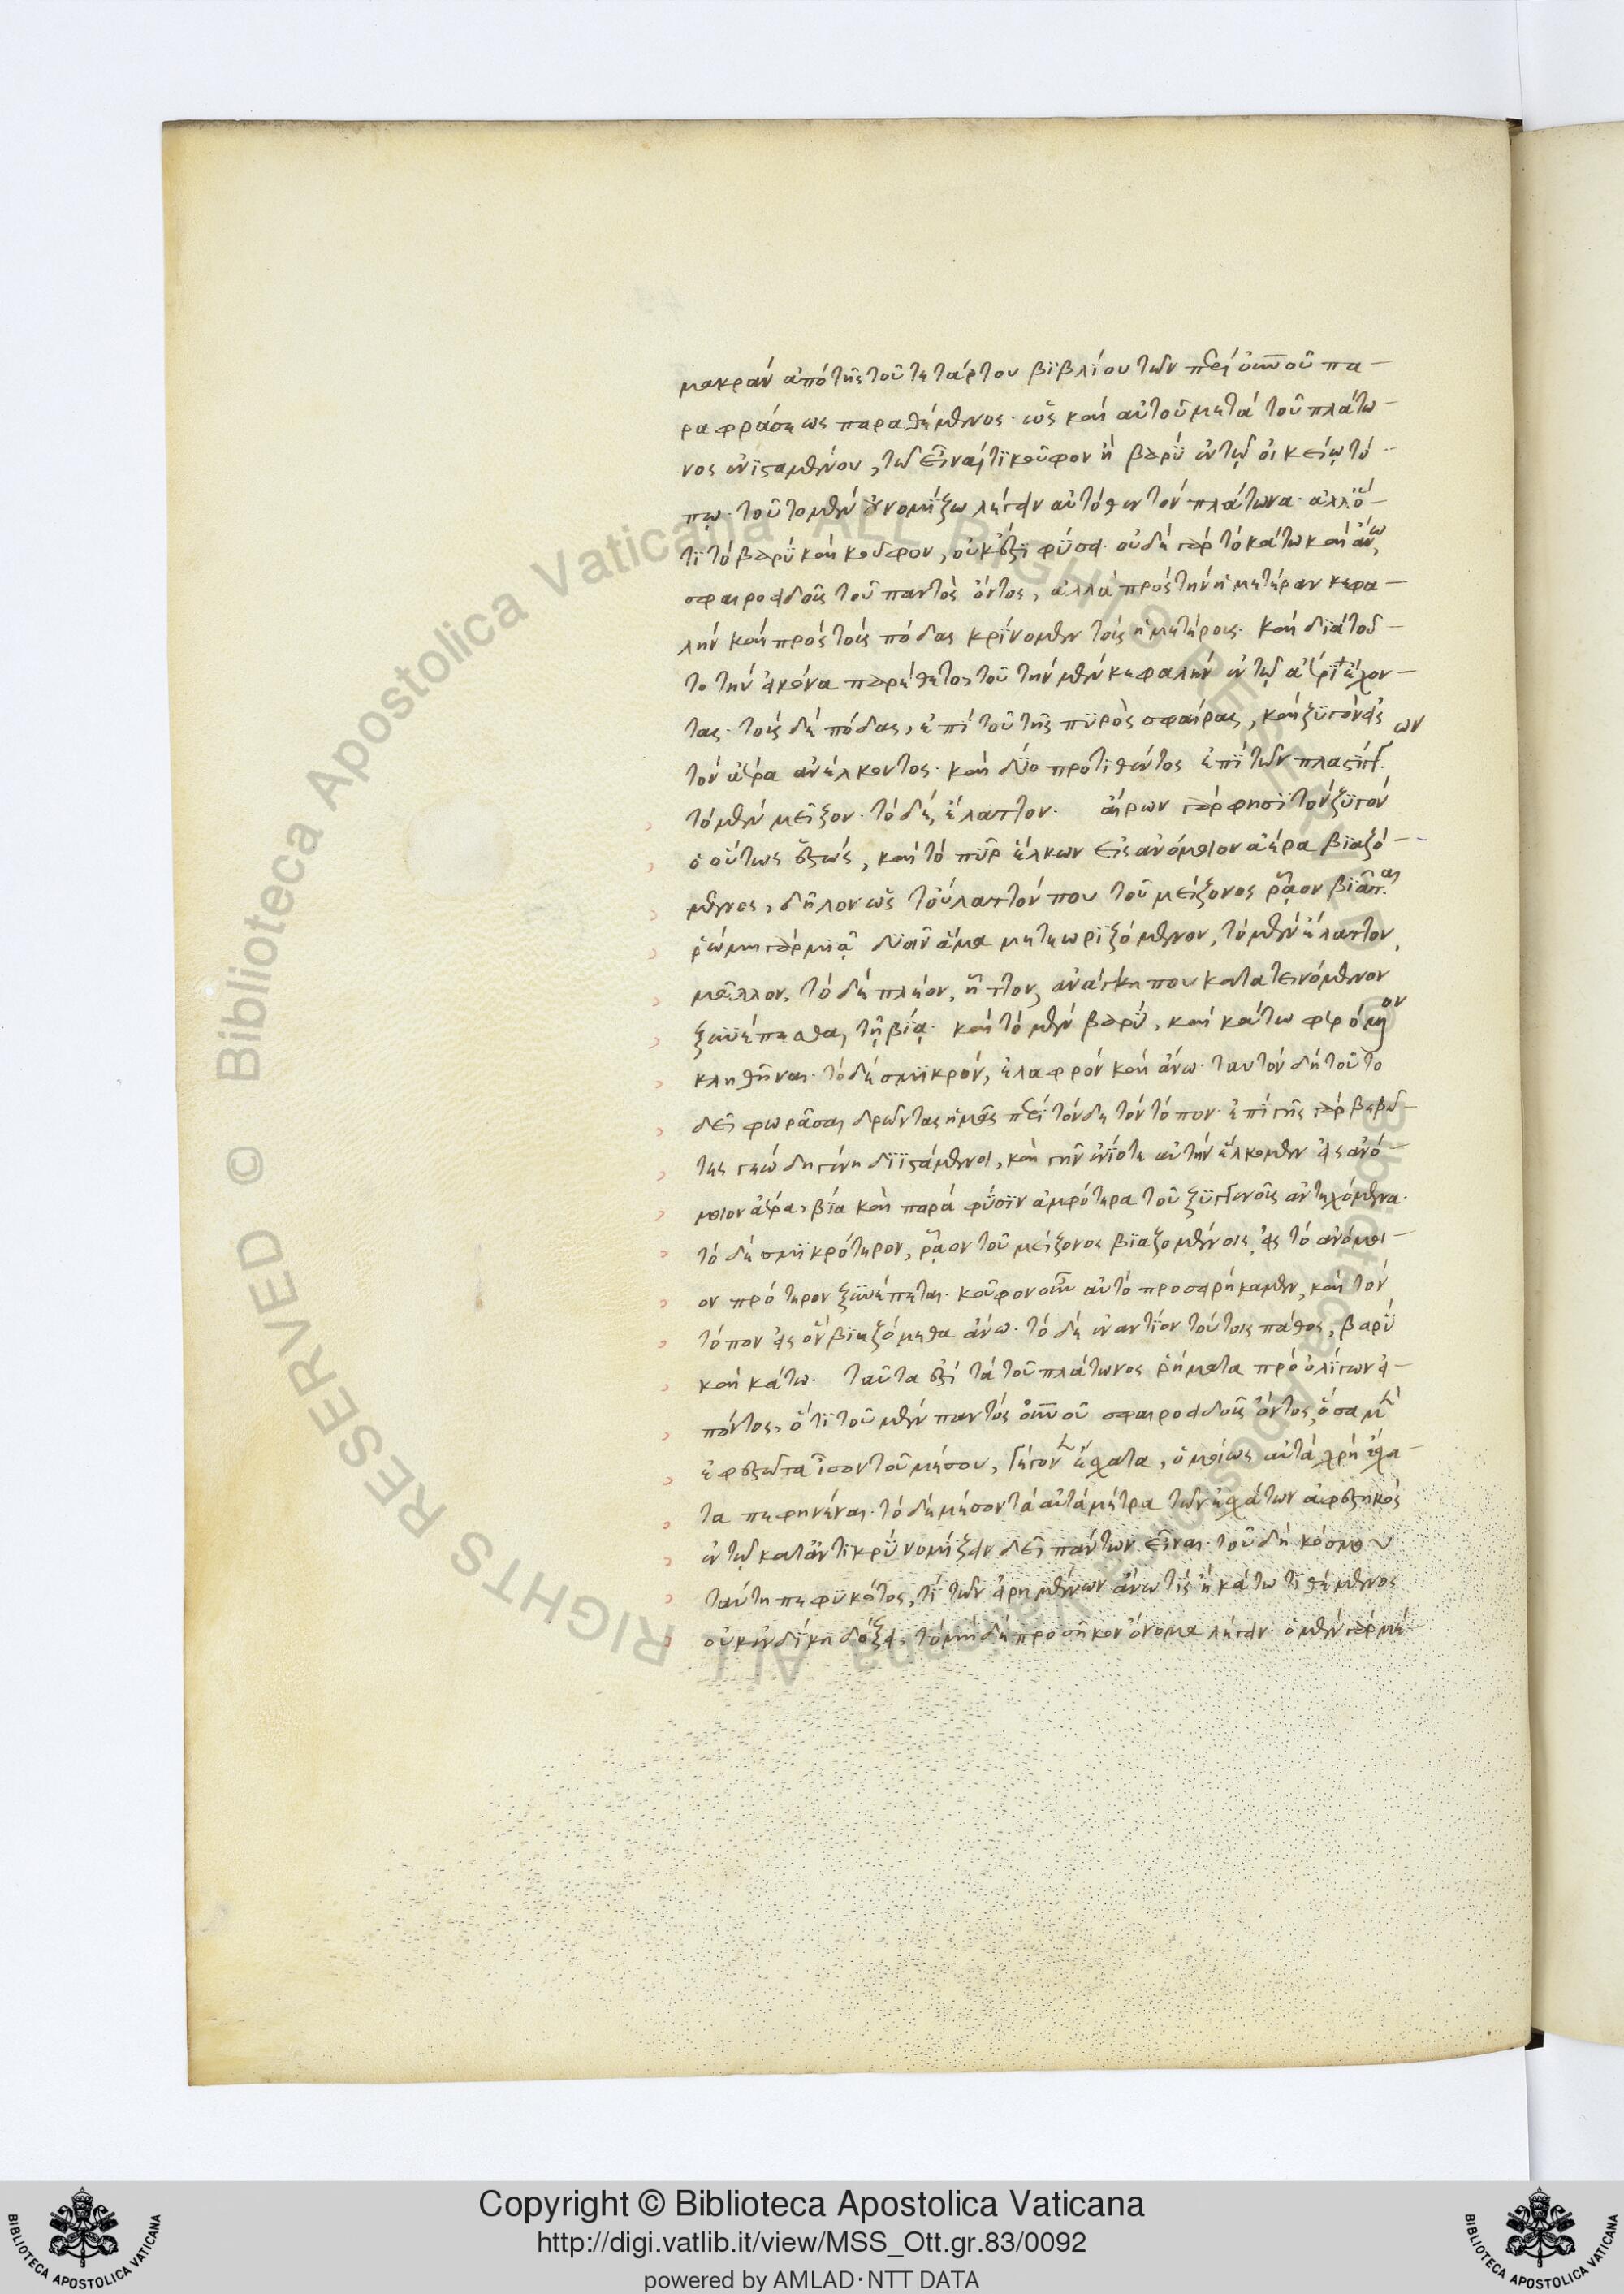 μακρὰν ἀπὸ τῆς τοῦ τετάρτου βιβλίου τῶν περὶ οὐνοῦ πα-
ραφράσεως παραθέμενος· ὡς καὶ αὐτοῦ μετὰ τοῦ πλάτω-
νος ἐνισταμένου, τῷ εἶναί τι κοῦφον ἢ βαρὺ ἐν τῷ οἰκείῳ τό-
πῳ· τοῦτο μὲν οὐ νομίζω λέγειν αὐτόθεν τὸν πλάτωνα· ἀλλ' ὅ-
τι τὸ βαρὺ καὶ κοῦφον, οὐκ ἔστι φύσει· οὐδὲ γὰρ τὸ κάτω καὶ ἄνω,
σφαιροειδοῦς τοῦ παντὸς ὄντος, ἀλλὰ πρὸς τὴν ἡμετέραν κεφα-
λὴν καὶ πρὸς τοὺς πόδας κρίνομεν τοὺς ἡμετέρους· καὶ διὰ τοῦ-
το τὴν εἰκόνα παρέθετο, τοῦ τὴν μὲν κεφαλὴν ἐν τῷ ἀέρι ἔχον-
τος· τοὺς δὲ πόδας, ἐπὶ τοῦ τῆς πυρὸς σφαίρας, καὶ ζυγὸν εἰς
τὸν ἀέρα ἀνέλκοντος· καὶ δύο προτιθέντος ἐπὶ τῶν πλαστίγγων
τὸ μὲν μεῖζον· τὸ δὲ, ἔλαττον· αἴρων γάρ φησι τὸν ζυγὸν
ὁ οὕτως ἑστὼς, καὶ τὸ πῦρ ἕλκων εἰς ἀνόμοιον ἀέρα βιαζό-
μενος, δῆλον ὡς τοὔλαττόν που τοῦ μείζονος ῥᾷον βιᾶται·
ῥώμῃ γὰρ μιᾷ δυοῖν ἅμα μετεωριζόμενον, τὸ μὲν ἔλαττον,
μᾶλλον, τὸ δὲ πλέον, ἧττον, ἀνάγκη που κατατεινόμενον
ξυνέπεσθαι τῇ βίᾳ· καὶ τὸ μὲν βαρὺ, καὶ κάτω φερόμενον
κληθῆναι· τὸ δὲ σμικρὸν, ἐλαφρὸν καὶ ἄνω· ταυτὸν δὴ τοῦτο
δεῖ φωρᾶσαι δρῶντας ἡμᾶς περὶ τόνδε τὸν τόπον· ἐπὶ γῆς γὰρ βεβῶ-
τες γεώδη γένη διϊστάμενοι, καὶ γῆν ἐνίοτε αὐτὴν ἕλκομεν εἰς ἀνό-
μοιον ἀέρα, βίᾳ καὶ παρὰ φύσιν ἀμφότερα τοῦ ξυγγενοῦς ἀντεχόμενα·
τὸ δὲ σμικρότερον, ῥᾷον τοῦ μείζονος βιαζομένοις, εἰς τὸ ἀνόμοι-
ον πρότερον ξυνέπεται· κοῦφον οὖν αὐτὸ προσειρήκαμεν, καὶ τὸν
τόπον εἰς ὃν βιαζόμεθα ἄνω· τὸ δὲ ἐναντίον τούτοις πάθος, βαρὺ
καὶ κάτω· ταῦτα ἐστὶ τὰ τοῦ πλάτωνος ῥήματα πρὸ ὀλίγων εἰ-
πόντος, ὅτι τοῦ μὲν παντὸς οὐνοῦ σφαιροειδοῦς ὄντος, ὅσα μὲν
ἀφεστῶτα ἴσον τοῦ μέσου, γέγονεν ἔσχατα, ὁμοίως αὐτὰ χρὴ ἔσχα-
τα πεφηνέναι· τὸ δὲ μέσον τὰ αὐτὰ μέτρα τῶν ἐσχάτων ἀφεστηκὸς
ἐν τῷ καταντικρὺ νομίζειν δεῖ πάντων εἶναι· τοῦ δὴ κόσμου
ταύτῃ πεφυκότος, τί τῶν εἰρημένων ἄνω τις ἢ κάτω τιθέμενος
οὐκ ἐν δίκῃ δόξει, τὸ μηδὲν προσῆκον ὄνομα λέγειν· ὁ μὲν γὰρ μέ-